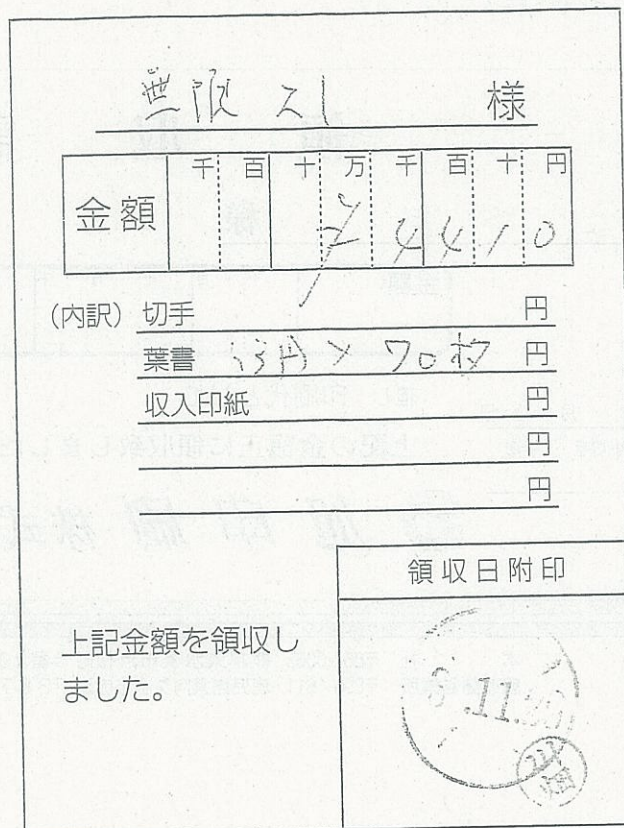 無限 様
千 百 十 万 千 百 十 円
金額 ¥ 4 4 1 0
(内訳) 切手 円
葉書 63円 × 70枚 円
収入印紙 円
円
円
領収日附印
上記金額を領収し
ました。
11